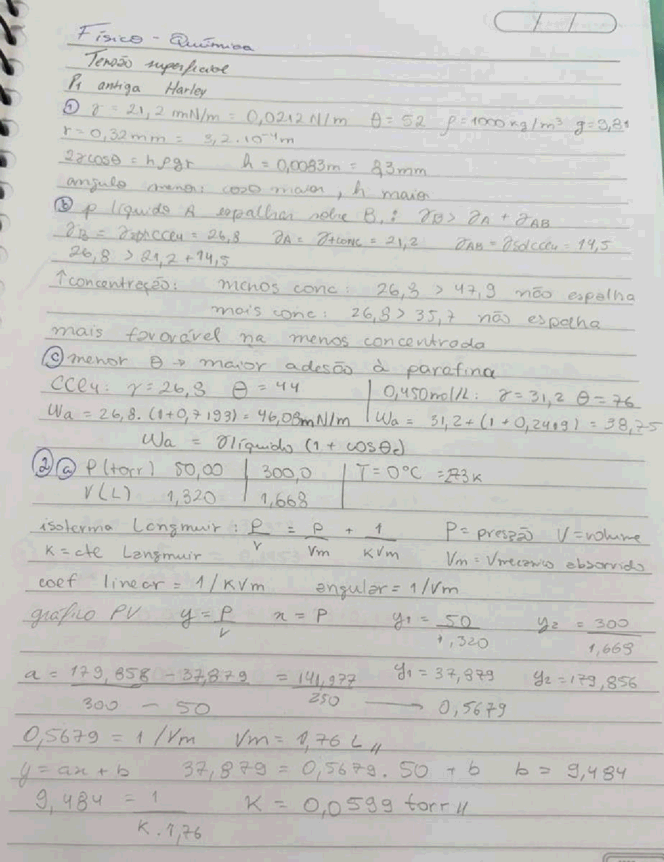 / /
Físico - Química
Tensão superficial
P1 antiga Harley
① γ = 21,2 mN/m = 0,0212 N/m θ = 52 ρ = 1000 kg/m³ g = 9,81
r = 0,32mm = 3,2.10⁻⁴m
2γcosθ = hρgr h = 0,0083m = 8,3mm
angulo menor: cosθ maior, h maior
ⓑ p líquido A espalhar sobre B: γB > γA + γAB
γB = = 26,8 γA = = 21,2 γAB = = 14,5
26,8 > 21,2 + 14,5
↑concentração: menos conc: 26,8 > 47,9 não espalha
mais conc: 26,8 > 35,7 não espalha
mais favorável na menos concentrada
ⓒ menor θ → maior adesão à parafina
CCl4: γ = 26,8 θ = 44 | 0,450mol/L: γ = 31,2 θ = 76
Wa = 26,8.(1+0,7193) = 46,08mN/m | Wa = 31,2+(1+0,2419) = 38,75
Wa = γlíquido (1 + cosθc)
② ⓐ P(torr) 50,00 | 300,0 | T = 0°C = 273K
V(L) 1,320 | 1,668
isoterma Langmuir: P/V = P/Vm + 1/KVm P = pressão V = volume
K = cte Langmuir Vm = Vmecanio absorvido
coef linear = 1/KVm angular = 1/Vm
gráfico PV y = P/V x = P y1 = 50/1,320 y2 = 300/1,668
a = 179,856 - 37,879/300 - 50 = 141,977/250 y1 = 37,879 y2 = 179,856
→ 0,5679
0,5679 = 1/Vm Vm = 1,76 L //
y = ax + b 37,879 = 0,5679.50 + b b = 9,484
9,484 = 1/K.1,76 K = 0,0599 torr //